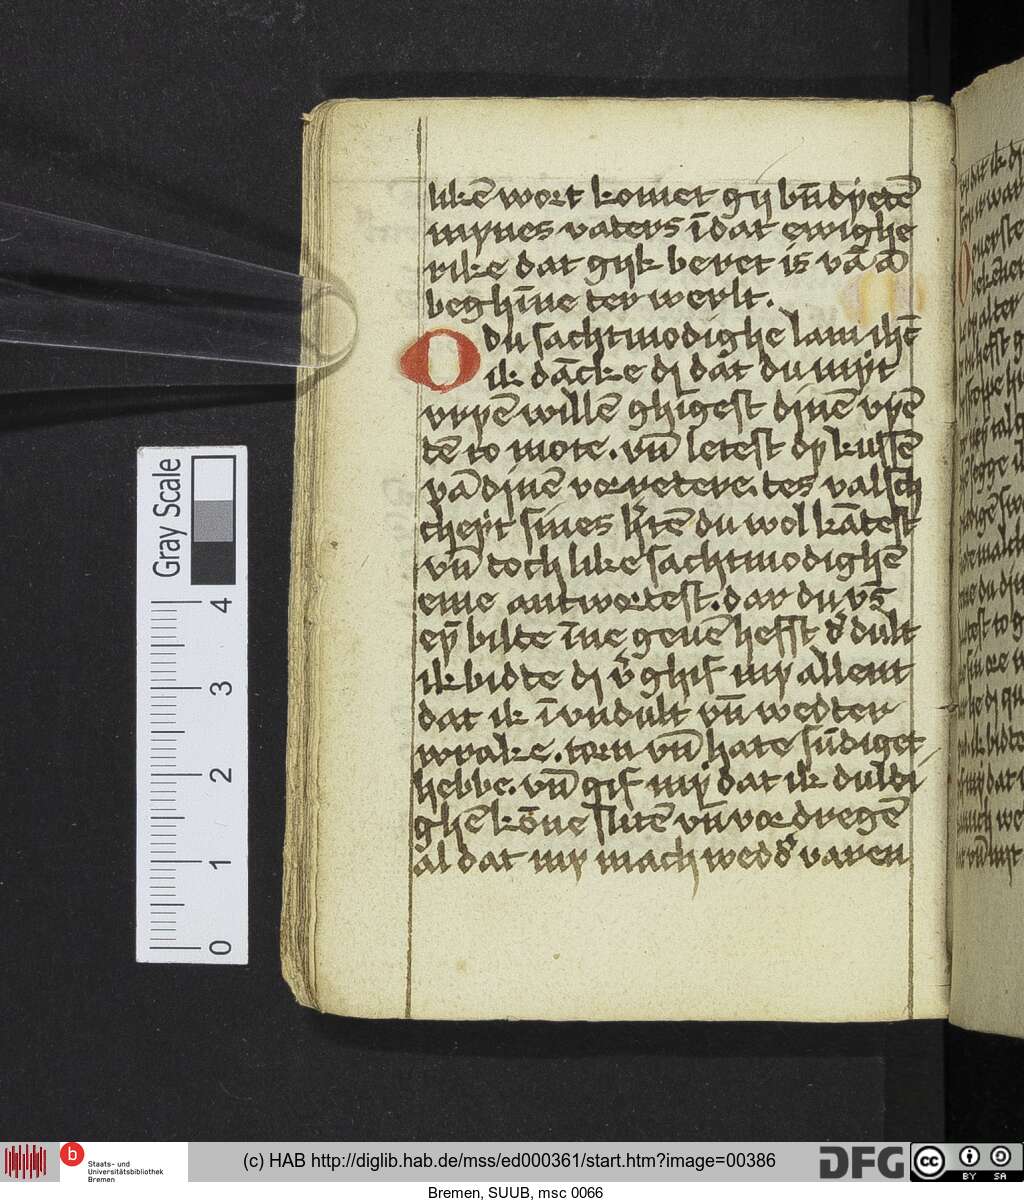 likē wort komet gij bn̄dyetē
mynes vaters ī dat ewighe
rike dat gijk beret is vā ā
beghīne ter werlt.
O du sachtmodighe lam ih̄c
ik dācke dj dat du myt
vryē willē ghīgest dinē vyē
tē to mote. vn̄ letest dy kussē
vā dinē vorretere. tes valsch
cheyt sines h̄tē du wol kātest
vn̄ toch like sachtmodighē
eme antwortest. dar du vs̄
eȳ bilte īne geuē hefft d̄ dult
ik bidte dj v̄ghif my allent
dat ik ī vndult vn̄ wedter
wrake. torn vn̄ hate sūdiget
hebbe. vn̄ gif my dat ik dulti
ghē kōne liitē vn̄ vordregē
al dat my mach wedd̄ varen
Gray Scale
4
3
2
1
0
b
Staats- und
Universitätsbibliothek
Bremen
(c) HAB http://diglib.hab.de/mss/ed000361/start.htm?image=00386
DFG
cc
BY SA
Bremen, SUUB, msc 0066